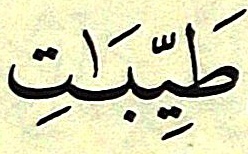 طَيِّبَٰتِ